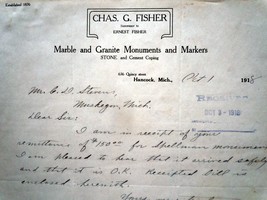 Established 1876
CHAS. G. FISHER
Successor to
ERNEST FISHER
Marble and Granite Monuments and Markers
STONE and Cement Coping
Quincy street
Hancock, Mich., Oct 1 1918
Mr. C. D. Stevens,
Muskegon, Mich.
Dear Sir:
I am in receipt of your
remittance of $150.00 for Skellman monument
I am pleased to hear that it arrived safely
and that it is O.K. Receipted bill is
enclosed herewith.
Yours